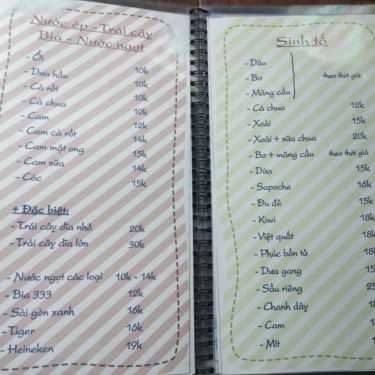 Nước ép - Trái cây
Bia - Nước ngọt
- Ổi 10k
- Dưa hấu 10k
- Cà rốt 10k
- Cà chua 10k
- Cam 12k
- Cam cà rốt 14k
- Cam mật ong 15k
- Cam sữa 14k
- Cóc 15k
+ Đặc biệt:
- Trái cây dĩa nhỏ 20k
- Trái cây dĩa lớn 30k
- Nước ngọt các loại 10k - 14k
- Bia 333 12k
- Sài gòn xanh 16k
- Tiger 16k
- Heineken 19k
Sinh tố
- Dâu
- Bơ theo thời giá
- Mãng cầu
- Cà chua 12k
- Xoài 15k
- Xoài + sữa chua 20k
- Bơ + mãng cầu theo thời giá
- Dừa 15k
- Sapoche 16k
- Đu đủ 15k
- Kiwi 18k
- Việt quất 18k
- Phúc bồn tử 18k
- Dưa gang 15k
- Sầu riêng
- Chanh dây 18k
- Cam
- Mít